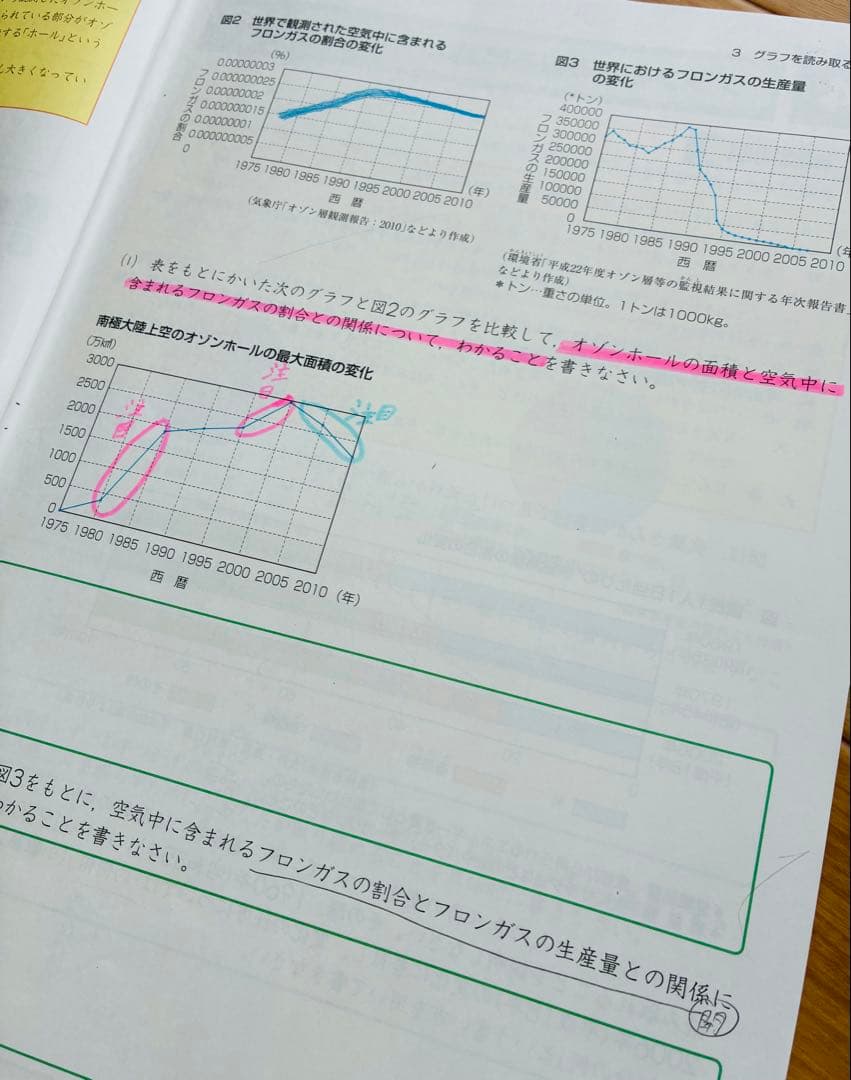 られている部分がオゾ
する「ホール」という
大きくなってい
3 グラフを読み取る
図2 世界で観測された空気中に含まれる
フロンガスの割合の変化
(%)
0.00000003
0.000000025
0.00000002
0.000000015
0.00000001
0.000000005
0
フロンガスの割合
1975 1980 1985 1990 1995 2000 2005 2010 (年)
西暦
(気象庁「オゾン層観測報告：2010」などより作成)
図3 世界におけるフロンガスの生産量
の変化
(*トン)
400000
350000
300000
250000
200000
150000
100000
50000
0
フロンガスの生産量
1975 1980 1985 1990 1995 2000 2005 2010 (年
西暦
(環境省「平成22年度オゾン層等の監視結果に関する年次報告書」
などより作成)
*トン…重さの単位。1トンは1000kg。
(1) 表をもとにかいた次のグラフと図2のグラフを比較して，オゾンホールの面積と空気中に
含まれるフロンガスの割合との関係について，わかることを書きなさい。
南極大陸上空のオゾンホールの最大面積の変化
(万km²)
3000
2500
2000
1500
1000
500
0
注目
注目
注目
1975 1980 1985 1990 1995 2000 2005 2010 (年)
西暦
図3をもとに，空気中に含まれるフロンガスの割合とフロンガスの生産量との関係に
わかることを書きなさい。